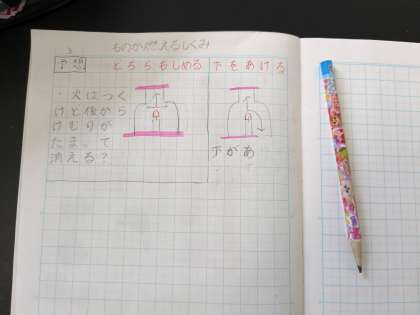 ものが燃えるしくみ
予想
どちらもしめる
下をあける
・火はつく
けど後から
けむりが
たまって
消える?
下があ